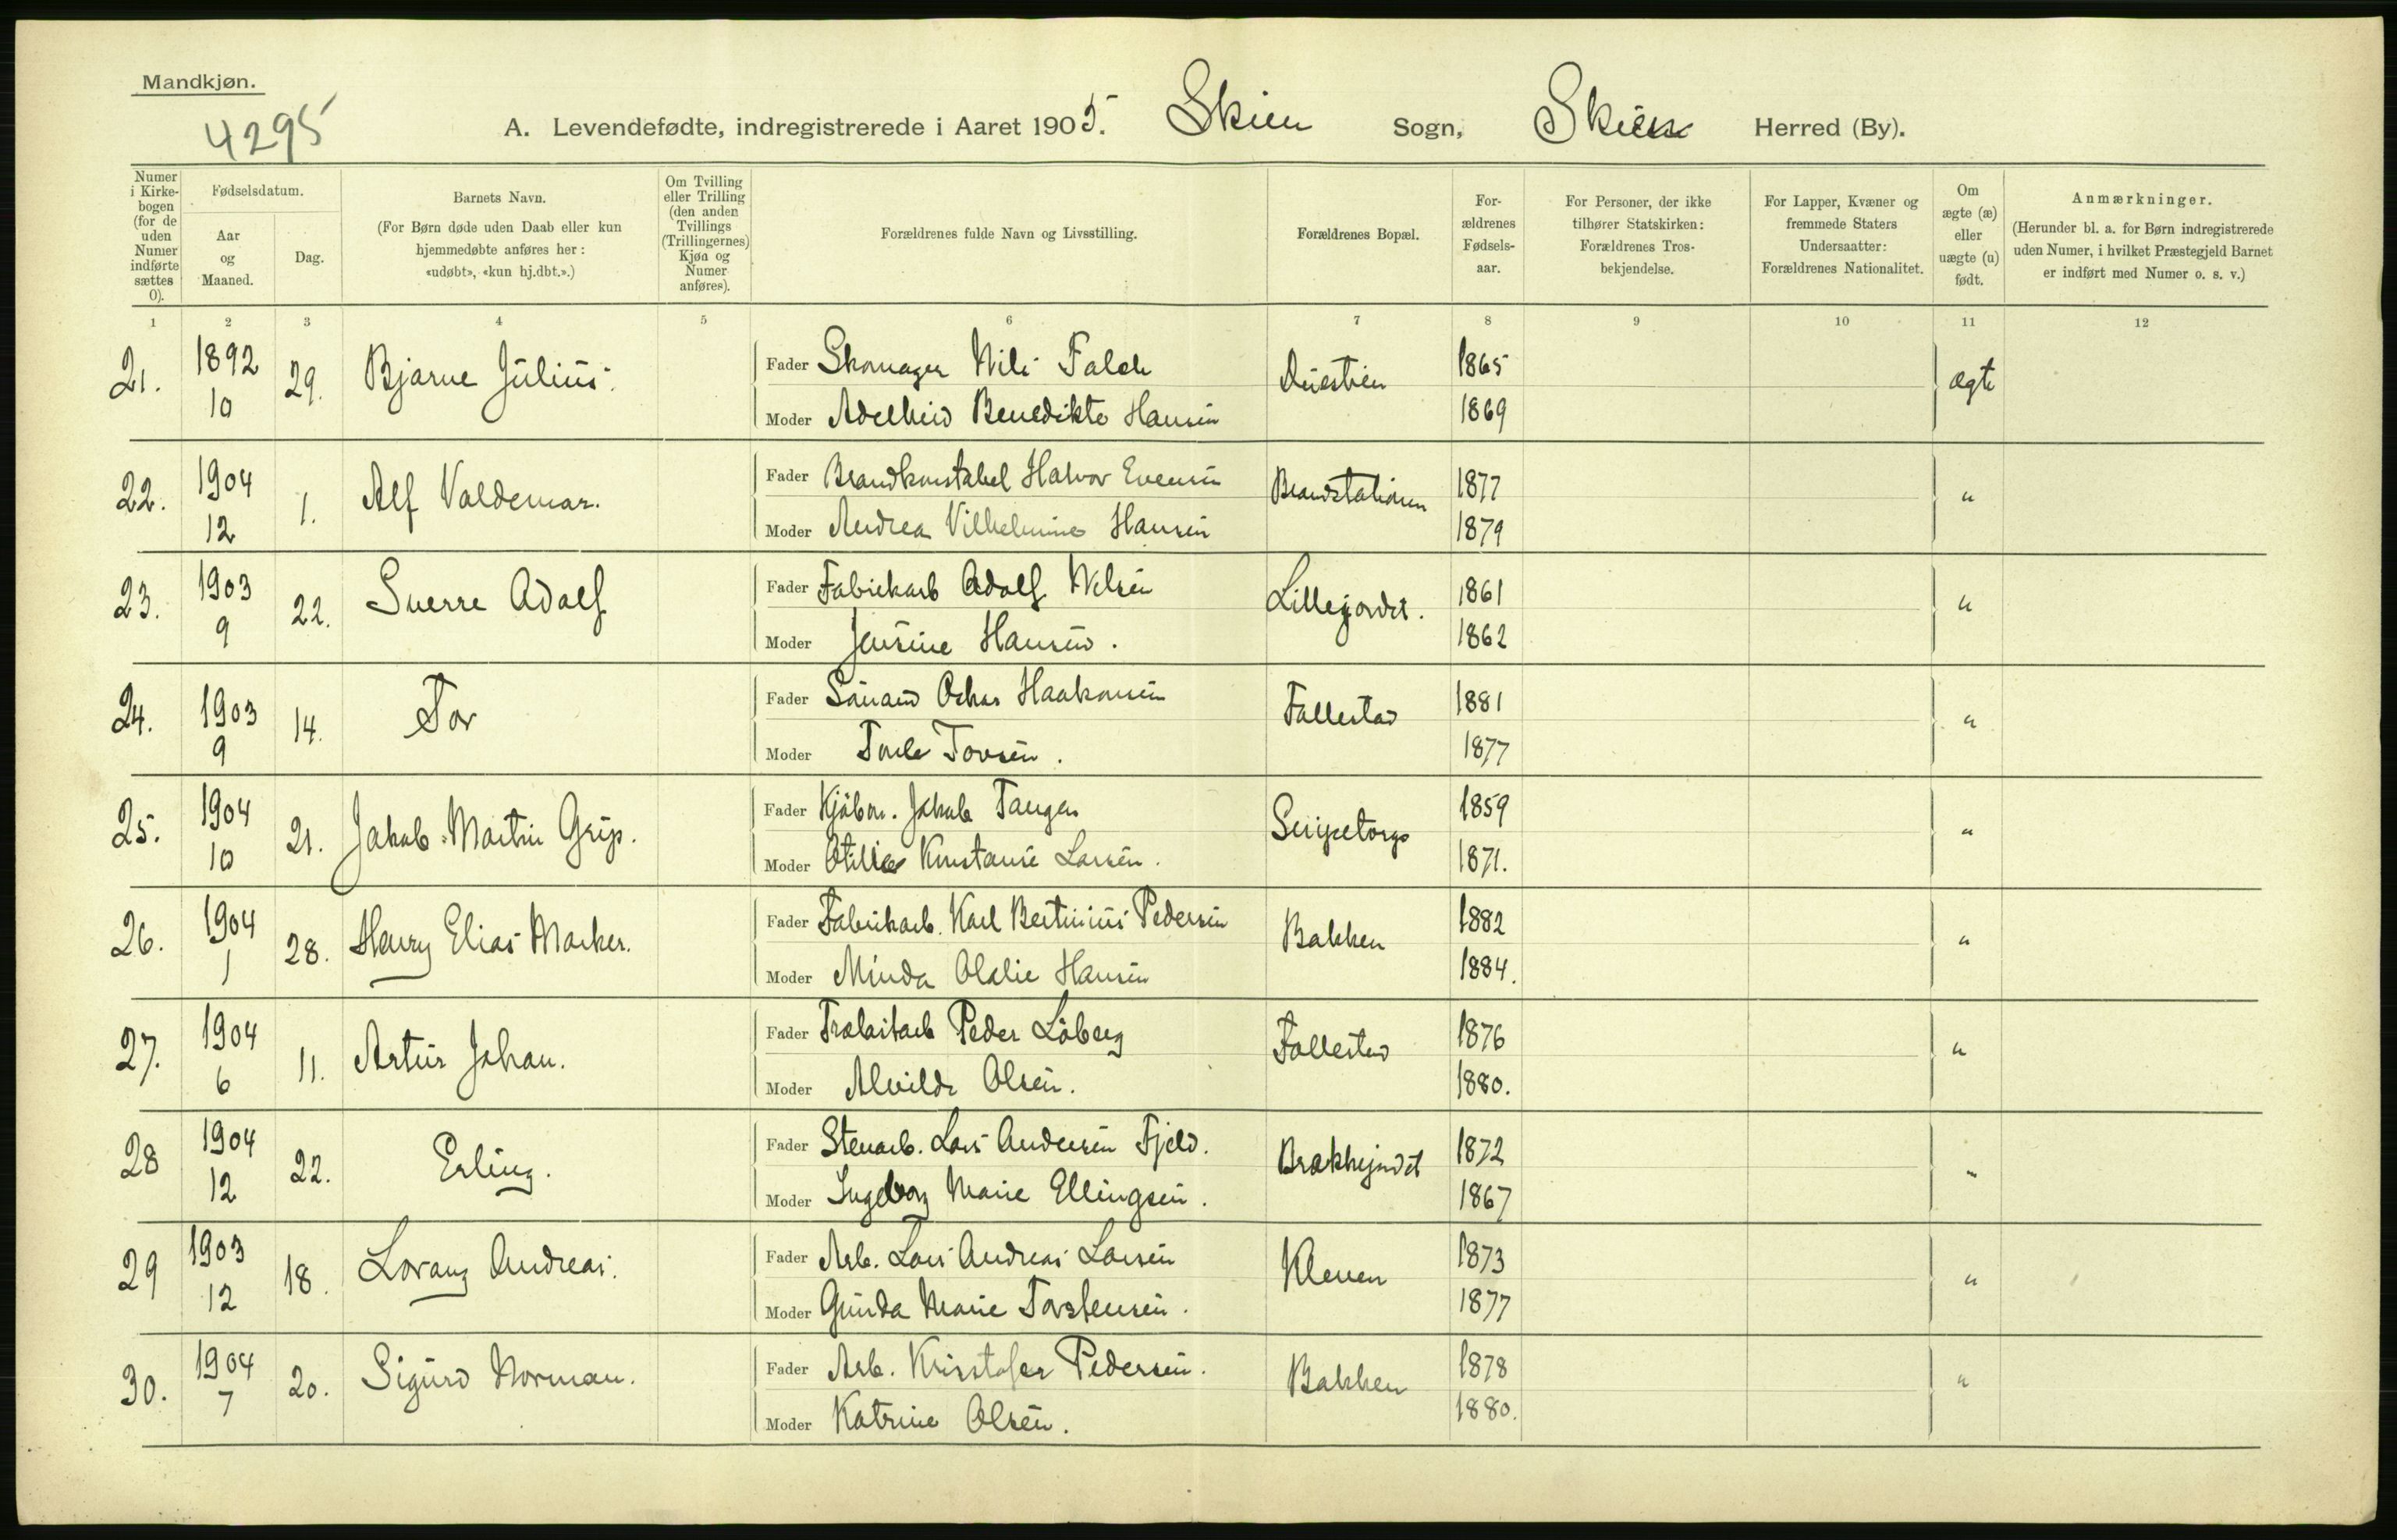 Mandkjøn.
4295
A. Levendefødte, indregistrerede i Aaret 1905. Skien Sogn, Skien Herred (By).
Numer i Kirkebogen (for de uden Numer indførte sættes 0).
Fødselsdatum.
Aar og Maaned.
Dag.
Barnets Navn.
(For Børn døde uden Daab eller kun hjemmedøbte anføres her: «udøbt», «kun hj.dbt.».)
Om Tvilling eller Trilling (den anden Tvillings (Trillingernes) Kjøn og Numer anføres).
Forældrenes fulde Navn og Livsstilling.
Forældrenes Bopæl.
Forældrenes Fødselsaar.
For Personer, der ikke tilhører Statskirken: Forældrenes Trosbekjendelse.
For Lapper, Kvæner og fremmede Staters Undersaatter: Forældrenes Nationalitet.
Om ægte (æ) eller uægte (u) født.
Anmærkninger.
(Herunder bl. a. for Børn indregistrerede uden Numer, i hvilket Præstegjeld Barnet er indført med Numer o. s. v.)
1 2 3 4 5 6 7 8 9 10 11 12
21. 1892 10 29. Bjarne Julius.
Fader Skomager Nils Falch 1865 ægte
Moder Adelheid Benedikte Hansen 1869
22. 1904 12 1. Alf Valdemar.
Fader Brandkonstabel Halvor Evensen Brandstationen 1877 "
Moder Andrea Vilhelmine Hansen 1879
23. 1903 9 22. Sverre Adolf
Fader Fabrikarb Adolf Nilsen Lillejordet. 1861 "
Moder Jensine Hansen. 1862
24. 1903 9 14. Tor
Fader Sømand Oskar Haakonsen Follestad 1881 "
Moder Torle Tovsen. 1877
25. 1904 10 21. Jakob Martin Grip.
Fader Kjøbm. Jakob Tangen Snipetorp 1859 "
Moder Otilie Konstanse Larsen. 1871.
26. 1904 1 28. Henry Elias Marker.
Fader Fabrikarb. Karl Bertinius Pedersen Bakken 1882 "
Moder Minda Olalie Hansen 1884.
27. 1904 6 11. Artur Johan.
Fader Peder Løberg Follestad 1876 "
Moder Alvilde Olsen. 1880.
28 1904 12 22. Erling.
Fader Stenarb. Lars Andersen Fjeld. Brækkejordet 1872 "
Moder Ingeborg Marie Ellingsen. 1867
29 1903 12 18. Lorang Andreas.
Fader Arb. Lars Andreas Larsen Kleven 1873 "
Moder Gunda Marie Torstensen. 1877
30. 1904 7 20. Sigurd Norman.
Fader Arb. Kristofer Pedersen. Bakken 1878 "
Moder Katrine Olsen. 1880.